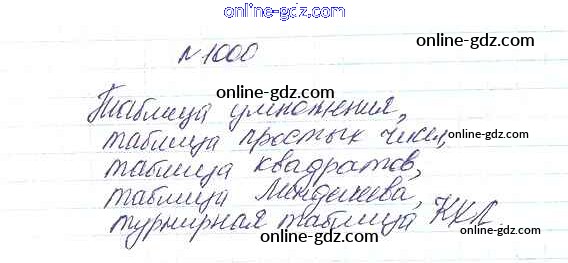 online-gdz.com
№1000
online-gdz.com
online-gdz.com
Таблица умножения,
online-gdz.com
таблица простых чисел,
online-gdz.com
таблица квадратов,
online-gdz.com
таблица Менделеева,
турнирная таблица КХЛ.
online-gdz.com